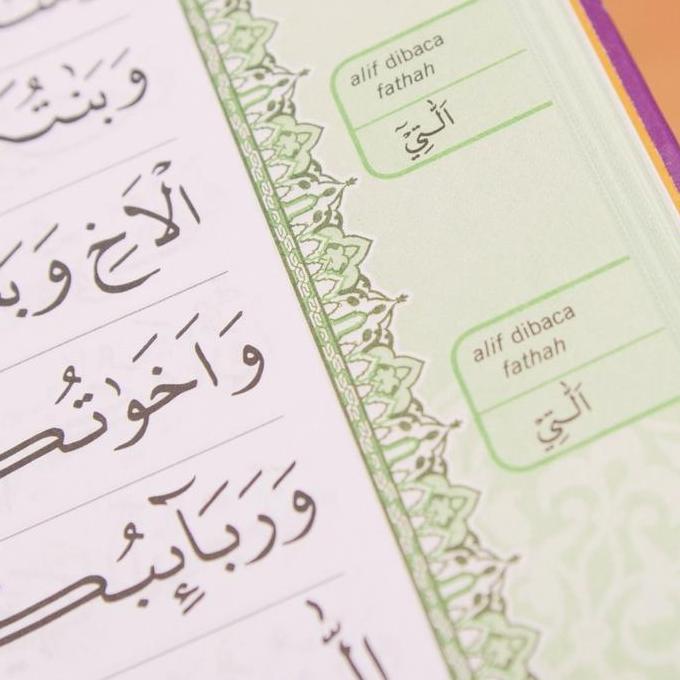 وَبَنٰتُ
الْاَخِ وَ
وَاَخَوٰتُك
وَرَبَاۤىِٕبُك
alif dibaca
fathah
اَلّٰتِيْٓ
alif dibaca
fathah
اَلّٰتِيْ